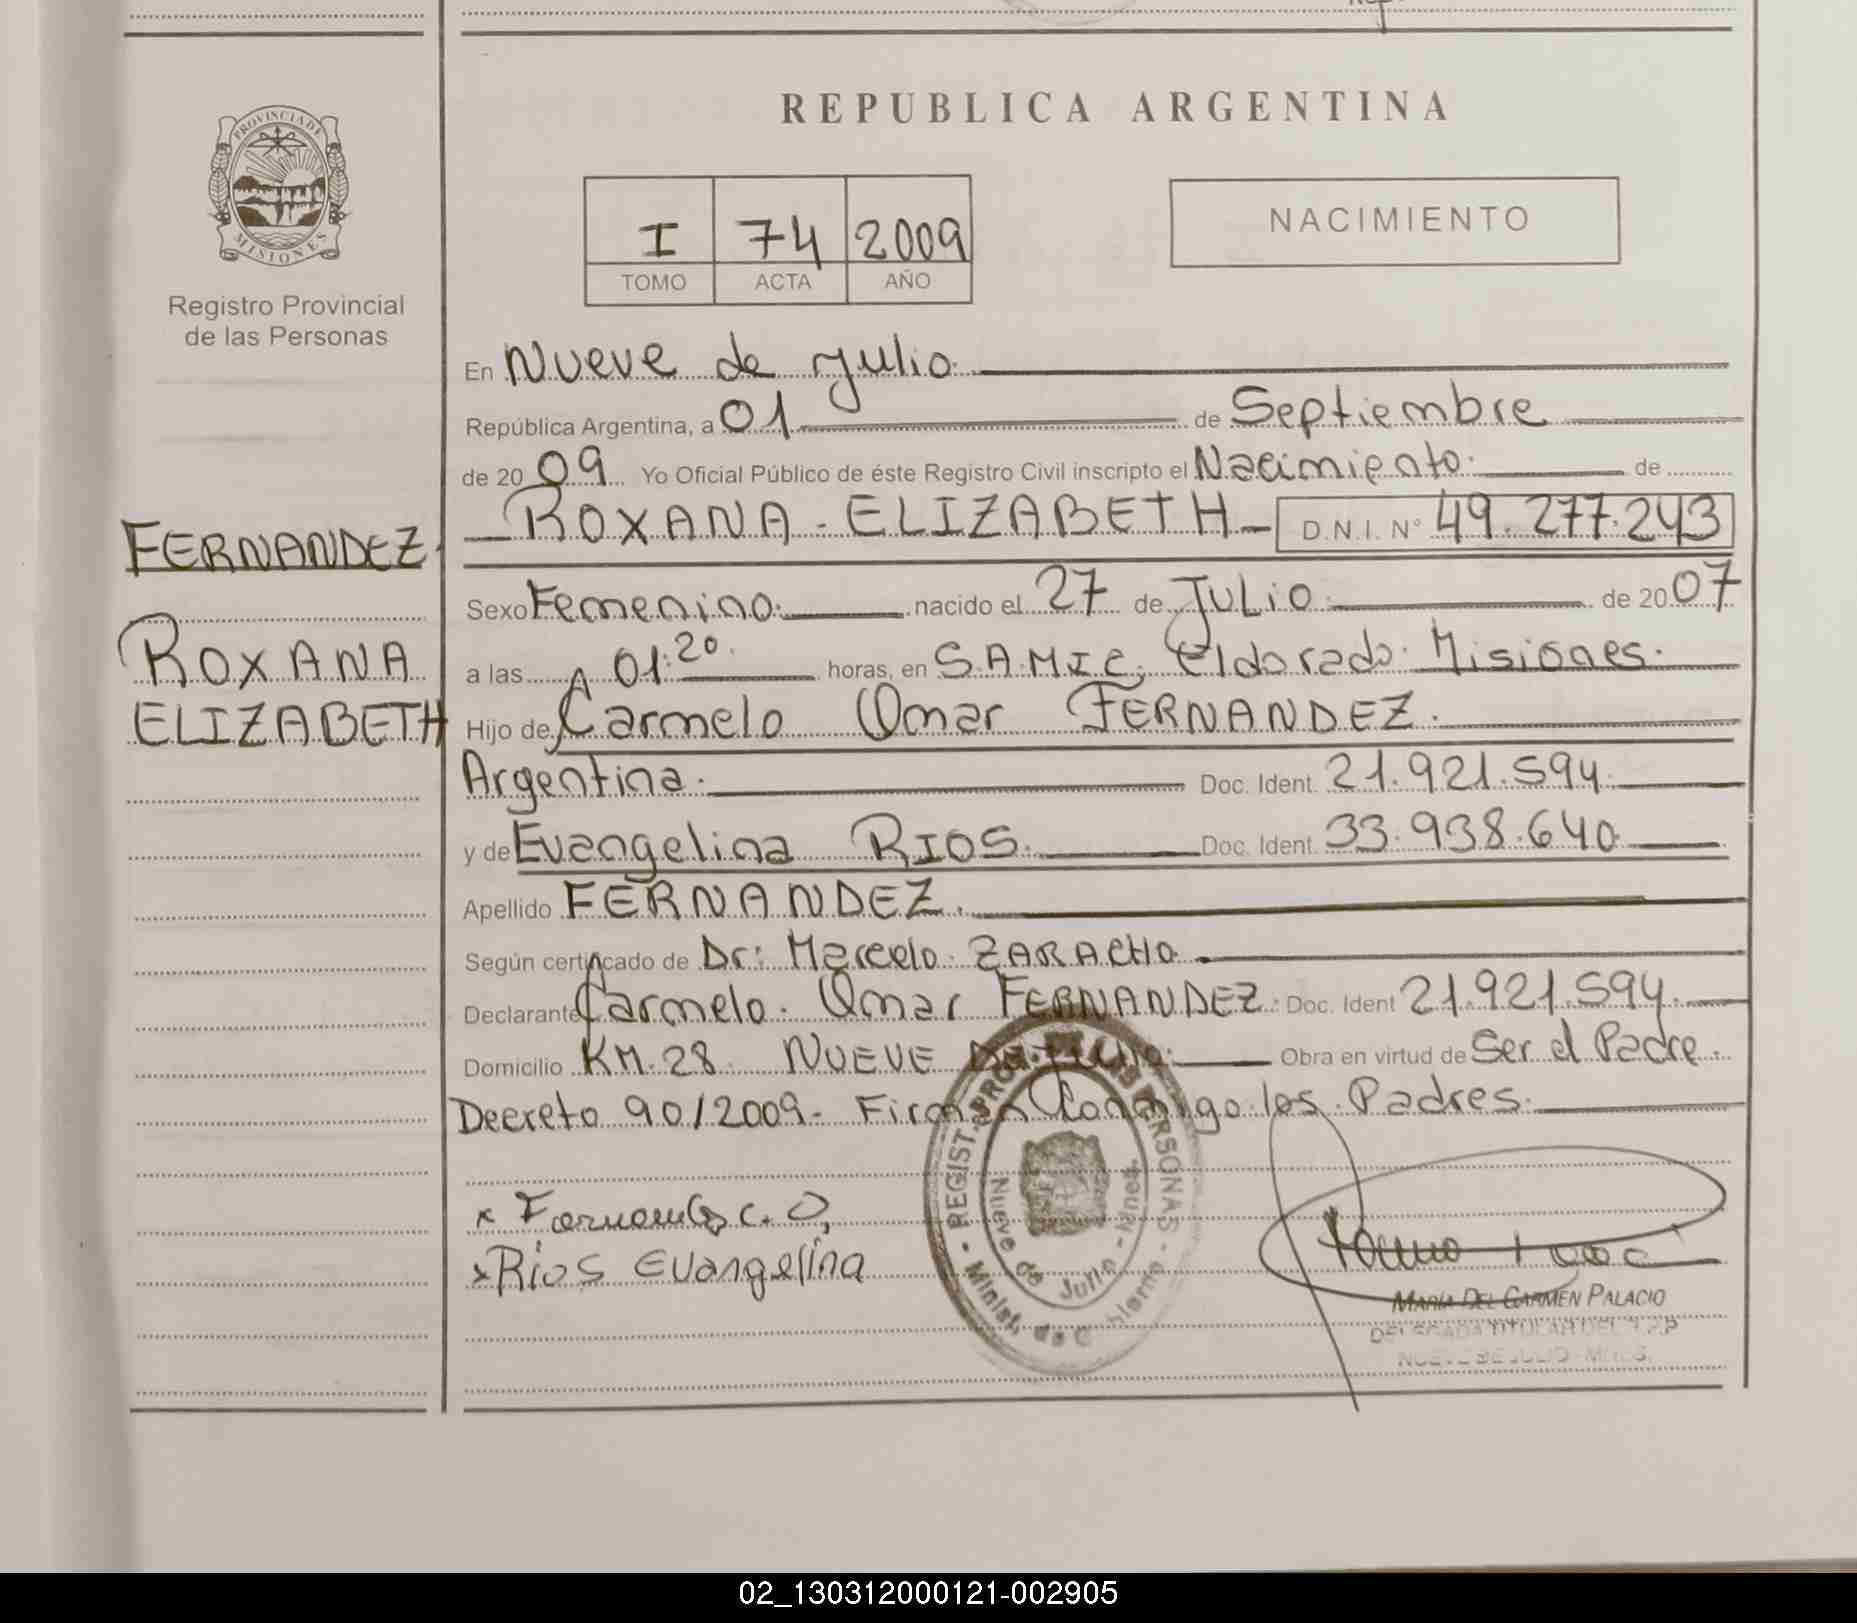 REPUBLICA ARGENTINA
PROVINCIA DE
MISIONES
Registro Provincial
de las Personas
I 74 2009
TOMO ACTA AÑO
NACIMIENTO
En Nueve de Julio.
República Argentina, a 01 de Septiembre
de 2009 Yo Oficial Público de éste Registro Civil inscripto el Nacimiento. de
ROXANA - ELIZABETH - D.N.I. Nº 49.277.243
FERNANDEZ.
ROXANA
ELIZABETH
Sexo Femenino. nacido el 27 de JULio. de 2007
a las 01:20. horas, en S.A.M.I.C. Eldorado. Misiones.
Hijo de Carmelo Omar FERNANDEZ.
Argentina. Doc. Ident. 21.921.594.
y de Evangelina RIOS. Doc. Ident. 33.938.640.
Apellido FERNANDEZ.
Según certificado de Dr: Marcelo. ZARACHO.
Declarante Carmelo. Omar FERNANDEZ. Doc. Ident 21.921.594.
Domicilio KM.28. NUEVE De Julio. Obra en virtud de Ser el Padre.
Decreto 90/2009- Firman Conmigo los Padres.
x Fernandez C. O,
x Rios Evangelina
REGIST. PROV. DE LAS PERSONAS
Nueve de Julio - Mnes.
MARIA DEL CARMEN PALACIO
DELEGADA TITULAR DEL R.P.P
NUEVE DE JULIO - MNES.
02_130312000121-002905